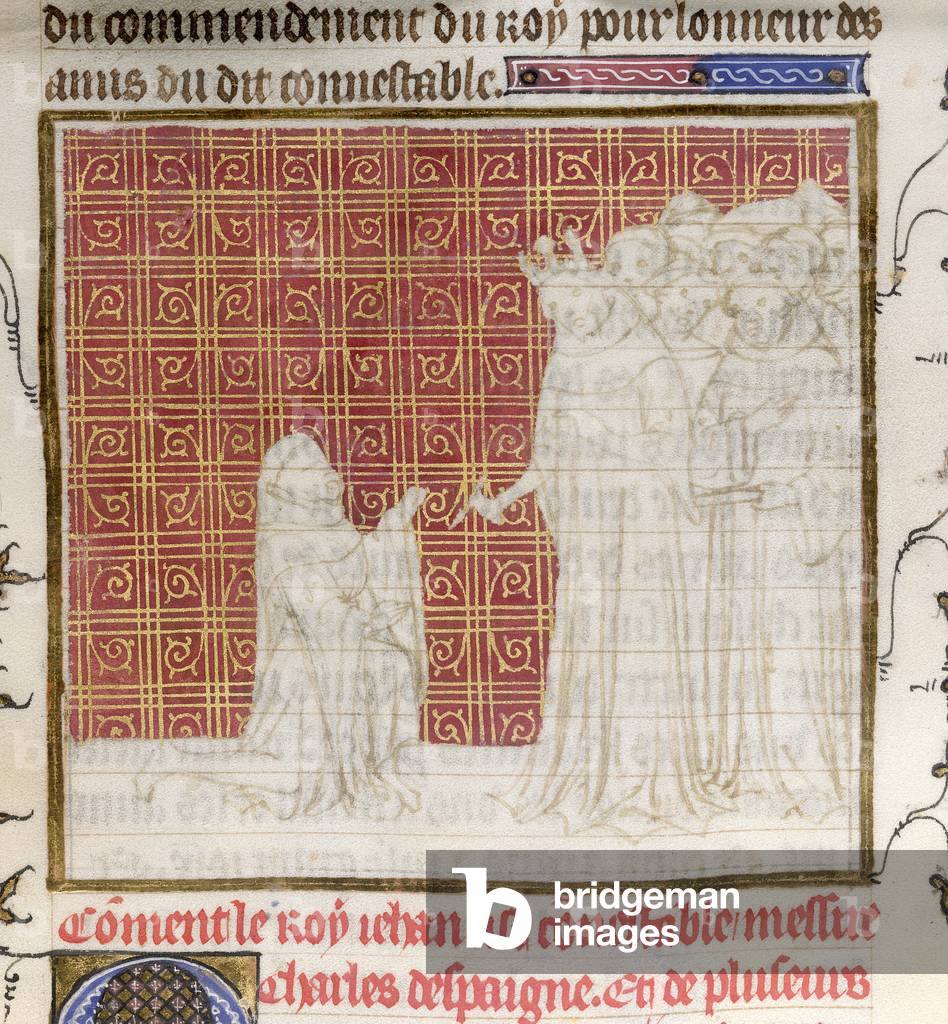 du commendement du roÿ pour lonneur des
amis du dit connestable.
Cōment le roÿ iehan fist connestable messire
Charles despaigne. Et de pluseurs
b bridgeman
images